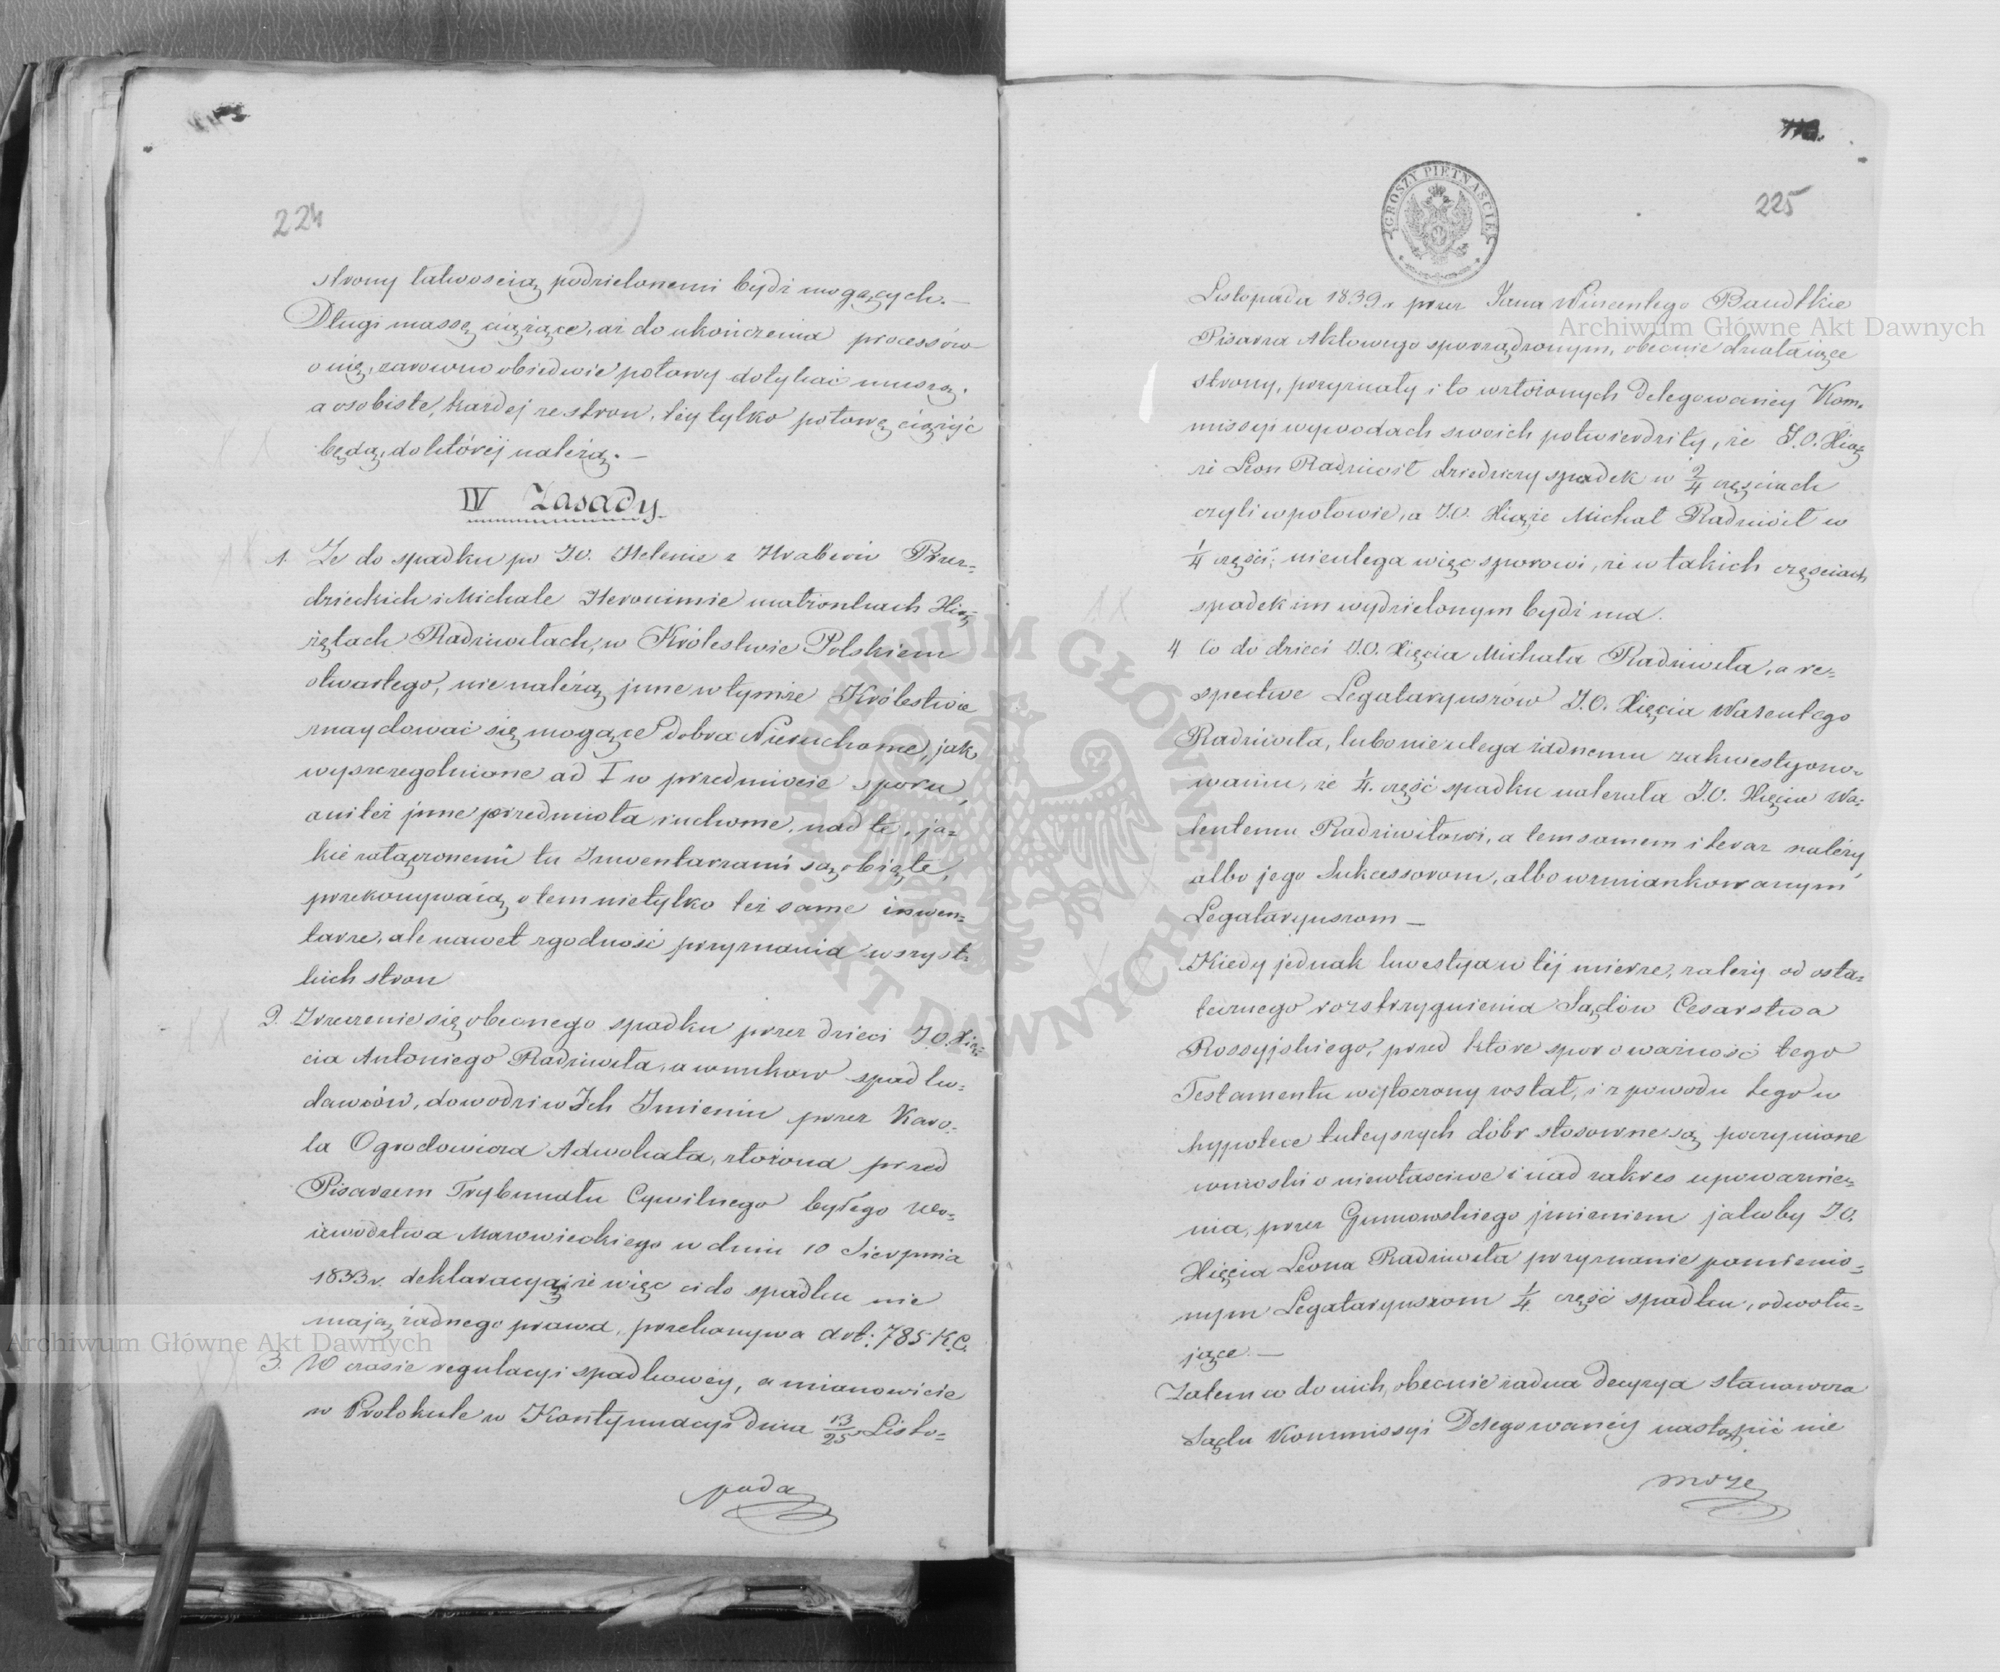 224
strony łatwością podzielonemi bydź mogących. —
Długi massę ciążące, aż do ukończenia processów
o nię, zarówno obiedwie połowy dotykać muszą.
a osobiste, każdej ze stron, tey tylko połowę ciężyć
będą, do któréj należą. —
IV Zasady.
1. Że do spadku po JO. Helenie z Hrabiów Przez-
dzieckich i Michale Heronimie małżonkach Xią-
żętach Radziwiłłach, w Królestwie Polskiem
otwartego, nie należą jnne w tymże Królestwie
znaydować się mogące dobra Nieruchome, jak
wyszczególnione ad I w przedmiocie sporu,
ani też jnne przedmiota ruchome, nad te, ja-
kie załączonemi tu Inwentarzami są objęte,
przekonywaią o tem nietylko też same inwen-
tarze, ale nawet zgodność przyznania wszyst-
kich stron
2. Zrzeczenie się obecnego spadku przez dzieci J.O. Xię-
cia Antoniego Radziwiłła, a wnuków spadko-
dawców, dowodzi w Ich Imieniu przez Karo-
la Ogrodowicza Adwokata, złożona przed
Pisarzem Trybunału Cywilnego byłego Wo-
iewództwa Mazowieckiego w dniu 10 Sierpnia
1833 r. deklaracya, że więc ci do spadku nie
mają żadnego prawa, przekonywa art: 785 K.C.
3. W czasie regulacyi spadkowéy, a mianowicie
w Protokule w Kontynuacyi dnia 13/25 Listo-
pada
118.
225
GROSZY PIĘTNAŚCIE
Listopada 1839 r przez Jana Wincentego Bandtkie
Pisarza Aktowego sporządzonym, obecnie działaiące
strony, przyznały i to w złożonych Delegowanéy Kom-
missyi wywodach swoich potwierdziły, że J.O. Xią-
że Leon Radziwiłł dziedziczy spadek w 2/4 częściach
czyli w połowie, a J.O. Xiąże Michał Radziwiłł w
1/4 części; nieulega więc sporowi, że w takich częściach
spadek im wydzielonym bydź ma.
4 Co do dzieci J.O. Xięcia Michała Radziwiłła, a re-
spective Legataryuszów J.O. Xięcia Walentego
Radziwiłła, lubo nie ulega żadnemu zakwestyono-
waniu, że 1/4 część spadku należała J.O. Xięciu Wa-
lentemu Radziwiłłowi, a tem samem i teraz należy
albo jego Sukcessorom, albo wzmiankowanym
Legataryuszom —
Kiedy jednak kwestya w téj mierze, zależy od osta-
tecznego rozstrzygnienia Sądów Cesarstwa
Rossyjskiego, przed które spór o ważność tego
Testamentu wytoczony został, i z powodu tego w
hypotece tuteyszych dóbr stosowne są poczynione
wnioski o niewłaściwe i nad zakres upoważnie-
nia, przez Gumowskiego jmieniem jakoby JO.
Xięcia Leona Radziwiłła przyznanie pomienio-
nym Legataryuszom 1/4 część spadku, odwołu-
jące. —
Zatem co do nich, obecnie żadna decyzya stanowcza
Sądu Kommissyi Delegowanéy nastąpić nie
może
Archiwum Główne Akt Dawnych
Archiwum Główne Akt Dawnych
ARCHIWUM GŁÓWNE AKT DAWNYCH